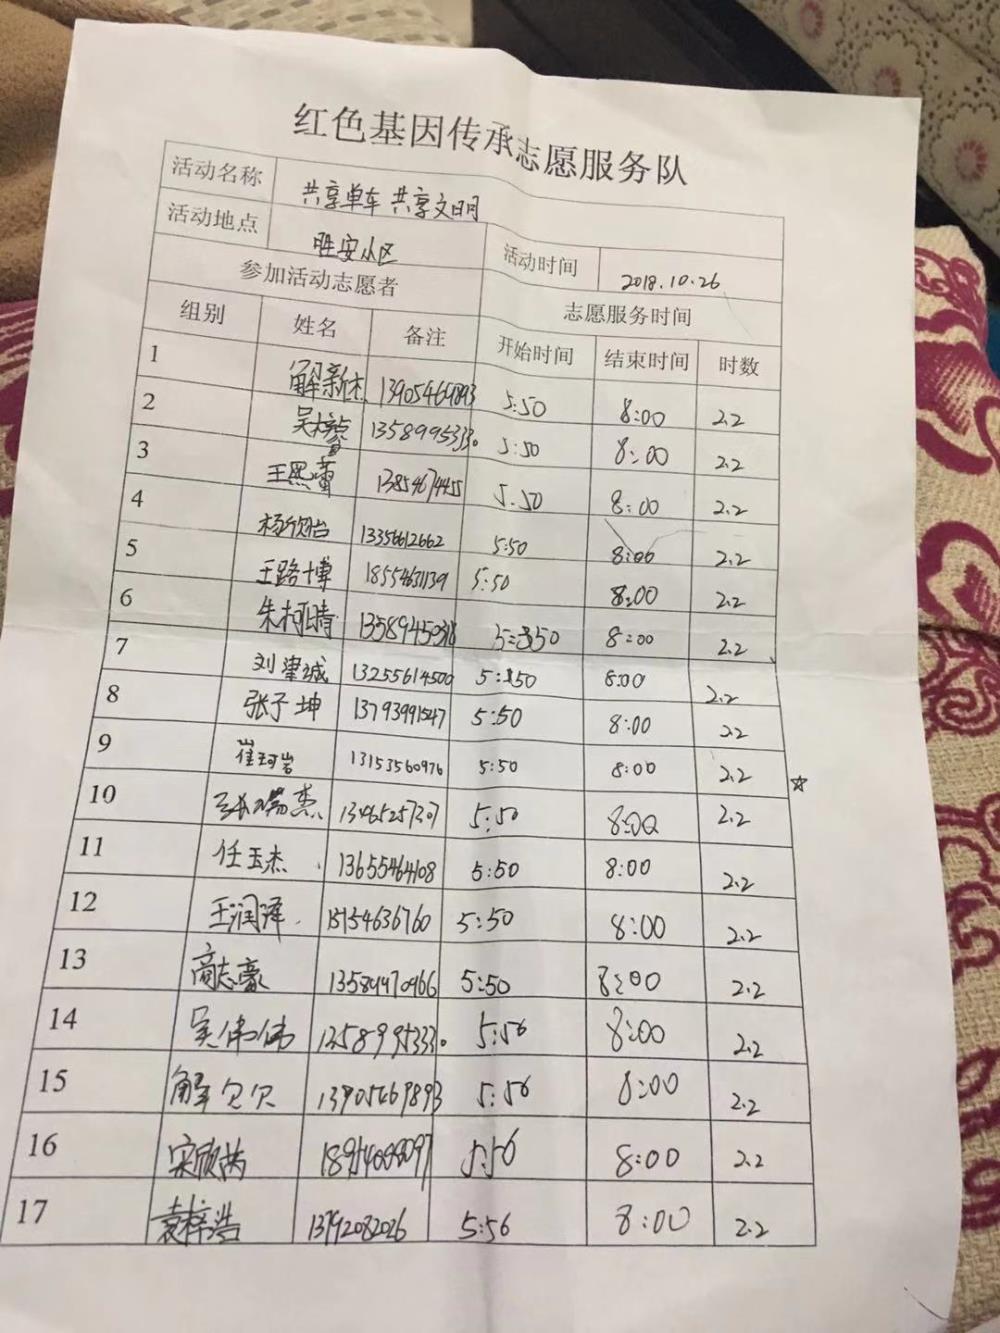 红色基因传承志愿服务队
活动名称 共享单车 共享文明
活动地点 胜安小区 活动时间 2018.10.26
参加活动志愿者 志愿服务时间
组别 姓名 备注 开始时间 结束时间 时数
1 解新杰 13905469893 5:50 8:00 2.2
2 13589995333 5:50 8:00 2.2
3 王熙蕾 13854674455 5:50 8:00 2.2
4 杨欣怡 13356612662 5:50 8:00 2.2
5 王路博 18554631139 5:50 8:00 2.2
6 朱柯晴 5:50 8:00 2.2
7 刘肇诚 13255614500 5:50 8:00 2.2
8 张子坤 13793991547 5:50 8:00 2.2
9 崔珂岩 13153560976 5:50 8:00 2.2 ☆
10 13465257307 5:50 8:00 2.2
11 任玉杰 13655464108 5:50 8:00 2.2
12 王润泽 15154636760 5:50 8:00 2.2
13 商志豪 5:50 8:00 2.2
14 吴伟伟 13589995333 5:56 8:00 2.2
15 解欠欠 13905469893 5:56 8:00 2.2
16 5:56 8:00 2.2
17 袁梓浩 13792082026 5:56 8:00 2.2